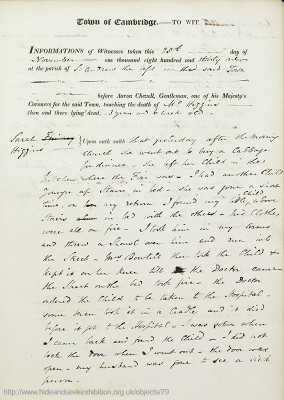 Town of Cambridge.—TO WIT.
INFORMATIONS of Witnesses taken this 28th day of
November one thousand eight hundred and thirty
at the parish of St Andrew the less in the said Town
before Aaron Chevell, Gentleman, one of his Majesty's
Coroners for the said Town, touching the death of Higgins
then and there lying dead. 3 years and old
Sarah
Higgins
Upon oath saith that yesterday after the morning
church she went out to buy a Cabbage
for dinner - she left her Child in the
Kitchen where the Fire was - I had another Child
younger up Stairs in bed - she was gone a short
time, on my return I found my Child above
Stairs in bed with the other - his Clothes
were all on fire - I took him in my Arms
and threw a Shawl over him and ran into
the Street - Mrs took the Child &
kept it on her knee till the Doctor came
the on the bed took fire - the Doctor
ordered the Child to be taken to the Hospital -
some men took it in a Cradle and it died
before it got to the Hospital - I was when
I came back and found the Child - I did not
lock the Door when I went out - the Door was
open - my husband was gone to see a sick
person.
http://www.hideandseekexhibition.org.uk/objects/79